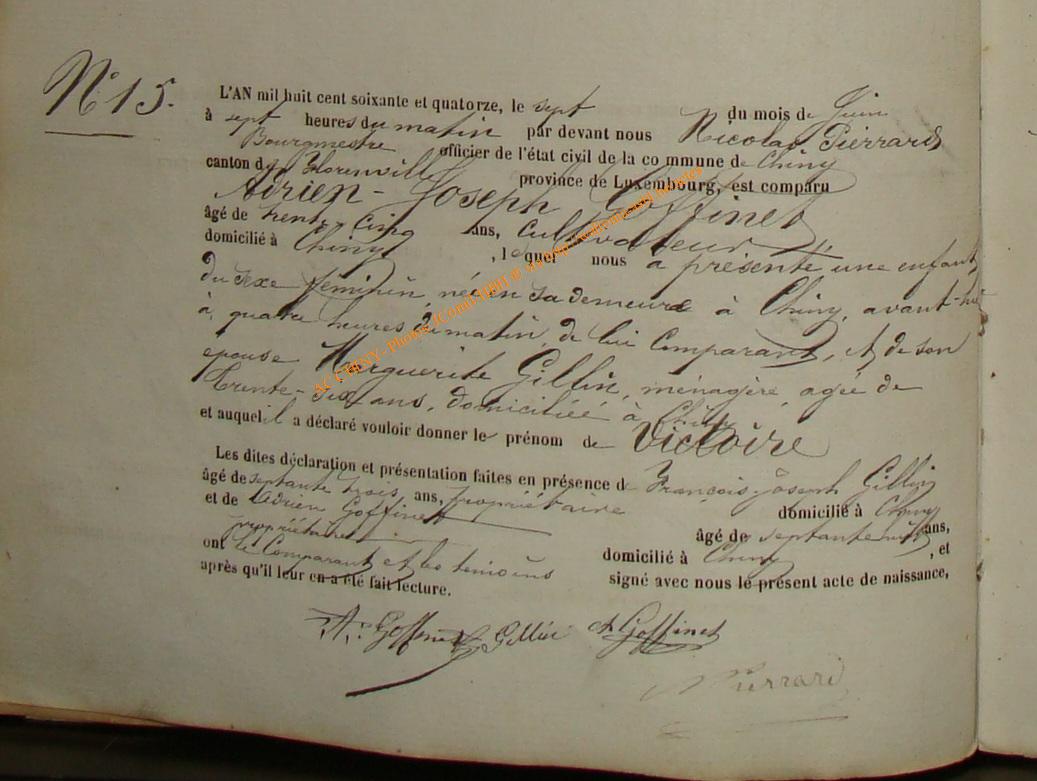 N° 15.
L'AN mil huit cent soixante et quatorze, le sept du mois de Juin
à sept heures du matin par devant nous Nicolas Pierrard
Bourgmestre officier de l'état civil de la commune de Chiny
canton de Florenville province de Luxembourg, est comparu
Adrien-Joseph Goffinet
âgé de trente-cinq ans, cultivateur
domicilié à Chiny, lequel nous a présenté une enfant
du sexe féminin, née en sa demeure à Chiny, avant-hier
à quatre heures du matin, de lui comparant, et de son
épouse Marguerite Gillin, ménagère, agée de
trente-six ans, domiciliée à Chiny
et auquel il a déclaré vouloir donner le prénom de Victoire
Les dites déclaration et présentation faites en présence de François-Joseph Gillin
âgé de septante trois ans, propriétaire domicilié à Chiny
et de Adrien Goffinet âgé de septante huit ans,
propriétaire domicilié à Chiny, et
ont le Comparant et les temoins signé avec nous le présent acte de naissance,
après qu'il leur en a été fait lecture.
A. Goffinet Gillin A Goffinet
N Pierrard